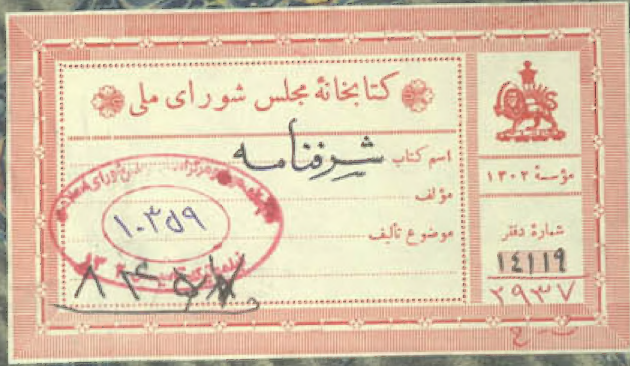 کتابخانهٔ مجلس شورای ملی
اسم کتاب شرفنامه
مؤلف
موضوع تألیف
مؤسسهٔ ۱۳۰۲
شمارهٔ دفتر
۱۴۱۱۹
۲۹۳۷
۱۰۳۵۹